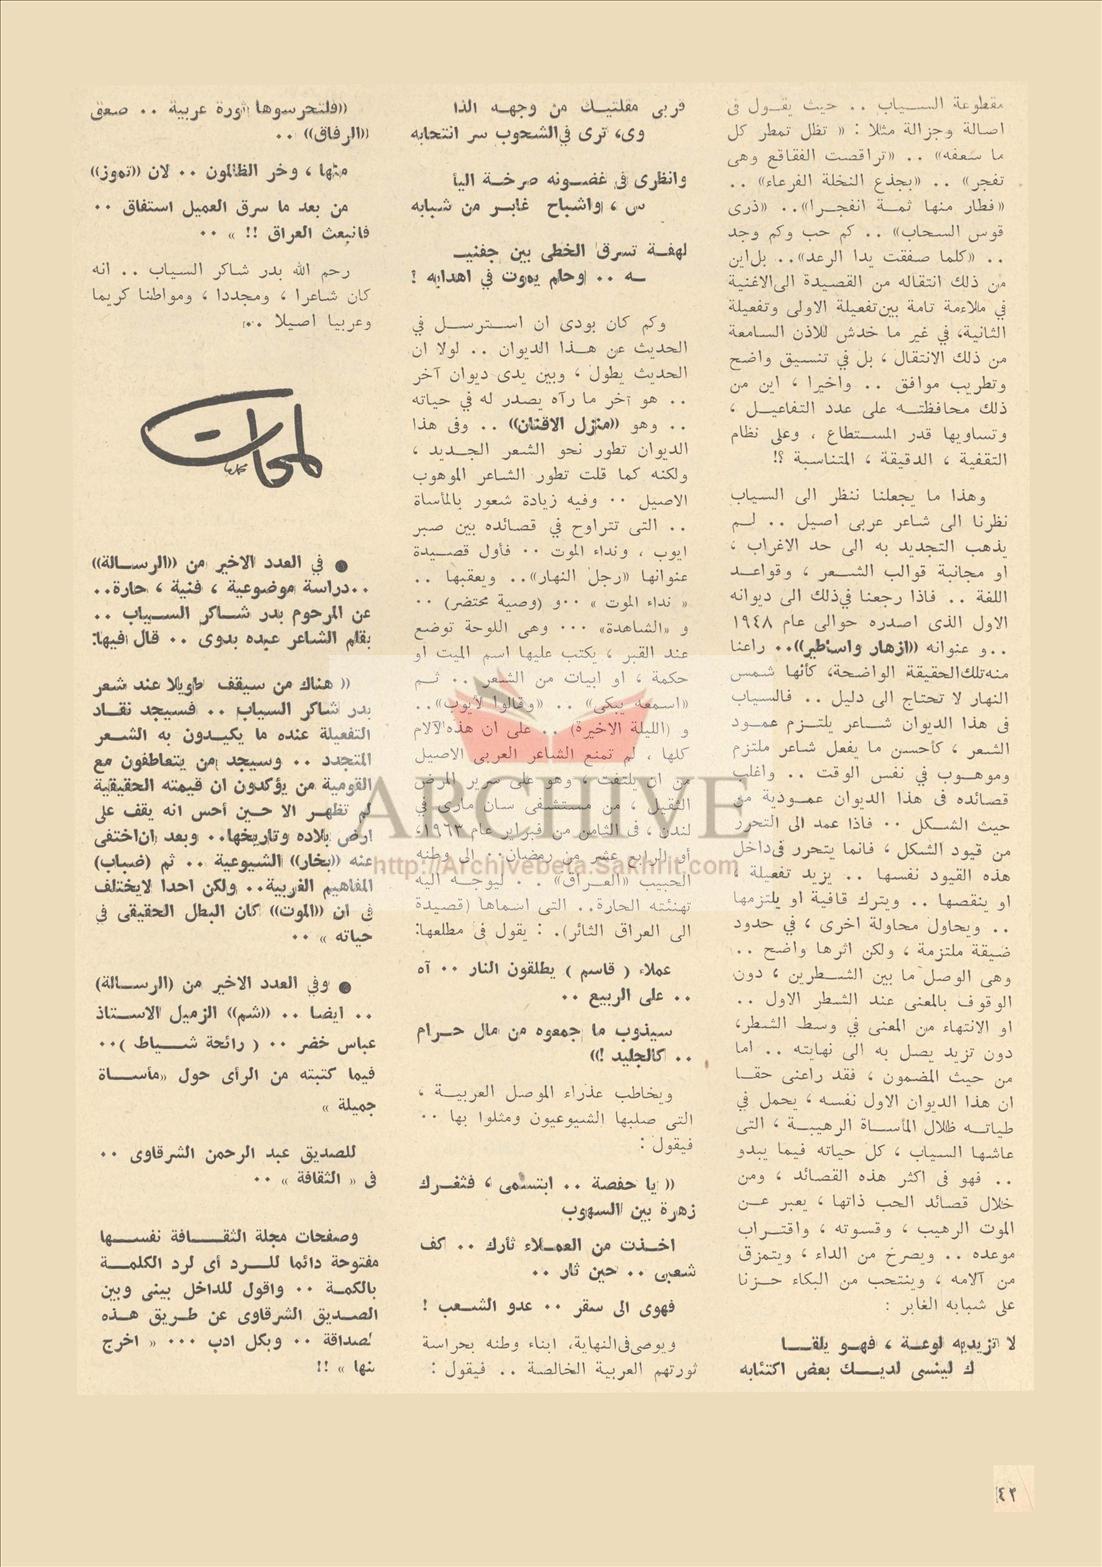 مقطوعة السـياب .. حيث يقـول فى
اصالة وجزالة مثلا : « تظل تمطر كل
ما سعفه» .. «تراقصت الفقاقع وهى
تفجر» .. «بجذع النخلة الفرعاء» ..
«فطار منها ثمـة انفجـرا».. «ذرى
قوس السحاب» .. كم حب وكم وجد
.. «كلما صفقت يدا الرعد».. بل اين
من ذلك انتقاله من القصيدة الى الاغنية
في ملاءمة تامة بين تفعيلة الاولى وتفعيلة
الثانية، في غير ما خدش للاذن السامعة
من ذلك الانتقال ، بل في تنسيق واضح
وتطريب موافق .. واخيرا ، اين من
ذلك محافظتـه على عدد التفاعيـل ،
وتساويها قدر المسـتطاع ، وعلى نظام
التقفية ، الدقيقة ، المتناسبة ؟!
وهذا ما يجعلنا ننظر الى السياب
نظرنا الى شاعر عربى اصيل .. لـم
يذهب التجديد به الى حد الاغراب ،
او مجانبة قوالب الشـعر ، وقواعـد
اللغة .. فاذا رجعنا فى ذلك الى ديوانه
الاول الذى اصدره حوالى عام ١٩٤٨
..و عنوانه ((ازهار واساطير)).. راعنا
منه تلك الحقيقة الواضحة، كأنها شمس
النهار لا تحتاج الى دليل .. فالسياب
فى هذا الديوان شـاعر يلتـزم عمـود
الشعر ، كأحسن ما يفعل شاعر ملتزم
وموهـوب في نفس الوقت .. واغلب
قصائده فى هذا الديوان عمـودية من
حيث الشـكل .. فاذا عمد الى التحرر
من قيود الشكل ، فانما يتحرر فى داخل
هذه القيود نفسها .. يزيد تفعيلة ،
او ينقصها .. ويترك قافية او يلتزمها
.. ويحاول محاولة اخرى ، في حدود
ضيقة ملتزمة ، ولكن اثرها واضح ..
وهى الوصل ما بين الشـطرين ، دون
الوقوف بالمعنى عند الشطر الاول ..
او الانتهاء من المعنى في وسط الشطر،
دون تزيد يصل به الى نهايته .. اما
من حيث المضمون ، فقد راعنى حقـا
ان هذا الديوان الاول نفسه ، يحمل في
طياتـه ظلال المأسـاة الرهيبـة ، التى
عاشها السياب ، كل حياته فيما يبدو
.. فهو فى اكثر هذه القصائد ، ومن
خلال قصائد الحب ذاتها ، يعبر عـن
الموت الرهيب ، وقسوته ، واقتـراب
موعده .. ويصرخ من الداء ، ويتمزق
من آلامه ، وينتحب من البكاء حـزنا
على شبابه الغابر :
لا تزيديه لوعـة ، فهـو يلقـــا
ك لينسى لديـــك بعض اكتئابه
قربى مقلتيـك من وجهـه الذا
وى، ترى في الشحوب سر انتحابه
وانظرى فى غضـونه صرخـة اليأ
س ، واشباح غابـر من شبابه
لهفـة تسرق الخطى بين جفنيـ
ـه .. وحلم يموت في اهدابه !
وكم كان بودى ان اسـترسل في
الحديث عن هـذا الديوان .. لولا ان
الحديث يطول ، وبين يدى ديوان آخر
.. هو آخر ما رآه يصدر له في حياته
.. وهو ((منزل الاقنان)) .. وفى هذا
الديوان تطور نحو الشعر الجـديد ،
ولكنه كما قلت تطور الشاعر الموهوب
الاصيل .. وفيه زيادة شعور بالمأساة
.. التى تتراوح في قصائده بين صبر
ايوب ، ونداء الموت .. فأول قصـيدة
عنوانها «رجل النهار».. ويعقبها ..
« نداء الموت » ..و (وصية محتضر) ..
و «الشاهدة» ... وهى اللوحة توضع
عند القبر ، يكتب عليها اسم الميت او
حكمة ، او ابيات من الشعر .. ثـم
«اسمعه يبكى» .. «وقالوا لأيوب»..
و (الليلة الاخيرة) .. على ان هذه الآلام
كلها ، لم تمنع الشاعر العربى الاصيل
من ان يلتفت ، وهو على سرير المرض
الثقيل ، من مستشفى سان مارى في
لندن ، فى الثامن من فبراير عام ١٩٦٣،
او الرابع عشر من رمضان.. الى وطنه
الحبيب «العـراق» .. ليوجـه اليه
تهنئته الحارة.. التى اسماها (قصيدة
الى العراق الثائر). : يقول فى مطلعها:
عملاء ( قاسم ) يطلقون النار .. آه
.. على الربيع ..
سيذوب ما جمعوه من مال حـرام
.. كالجليد !))
ويخاطب عذراء الموصل العربيـة ،
التى صلبها الشيوعيون ومثلوا بها ..
فيقول :
(( يا حفصة .. ابتسمى ، فثغـرك
زهرة بين السهوب
اخـذت من العمـلاء ثأرك .. كف
شعبى .. حين ثار ..
فهوى الى سقر .. عدو الشـعب !
ويوصى فى النهاية، ابناء وطنه بحراسة
ثورتهم العربية الخالصة .. فيقول :
((فلتحرسوها ثورة عربية .. صعق
((الرفاق)) ..
منها ، وخر الظالمون .. لان ((تموز))
من بعد ما سرق العميل استفاق ..
فانبعث العراق !! » ..
رحم الله بدر شاكر السياب .. انه
كان شاعرا ، ومجددا ، ومواطنا كريما
وعربيا اصيلا ..
لمحات
● في العدد الاخير من ((الرسـالة))
..دراسة موضوعية ، فنية ، حارة..
عن المرحوم بدر شـاكر السـياب ..
بقلم الشاعر عبده بدوى .. قال فيها:
(( هناك من سيقف طويلا عند شعر
بدر شاكر السياب .. فسيجد نقـاد
التفعيلة عنده ما يكيـدون به الشعر
المتجدد .. وسيجد من يتعاطفون مع
القومية من يؤكدون ان قيمته الحقيقية
لم تظهـر الا حـين أحس انه يقف على
ارض بلاده وتاريخها.. وبعد ان اختفى
عنه ((بخار)) الشيوعية .. ثم (ضباب)
المفاهيم الغربية.. ولكن احدا لايختلف
فى ان ((الموت)) كان البطل الحقيقى في
حياته » ..
● وفي العدد الاخير من (الرسـالة)
.. ايضا .. ((شم)) الزميل الاسـتاذ
عباس خضر .. ( رائحة شـياط )..
فيما كتبته من الرأى حول «مأسـاة
جميلة »
للصديق عبد الرحمن الشرقاوى ..
فى « الثقافة » ..
وصفحات مجلة الثقـافة نفسـها
مفتوحة دائما للـرد أى لرد الكلمـة
بالكمة .. واقول للداخل بينى وبين
الصـديق الشرقاوى عن طريق هـذه
لصداقة .. وبكل ادب ... « اخرج
نها » !!
ARCHIVE
http://Archivebeta.Sakhrit.com
٤٢